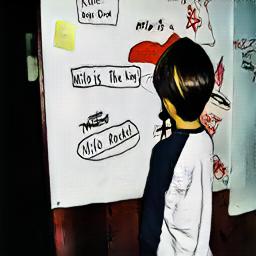 Rule
Boys Drool
Milo is a
Milo is The King
Milo Rocks!